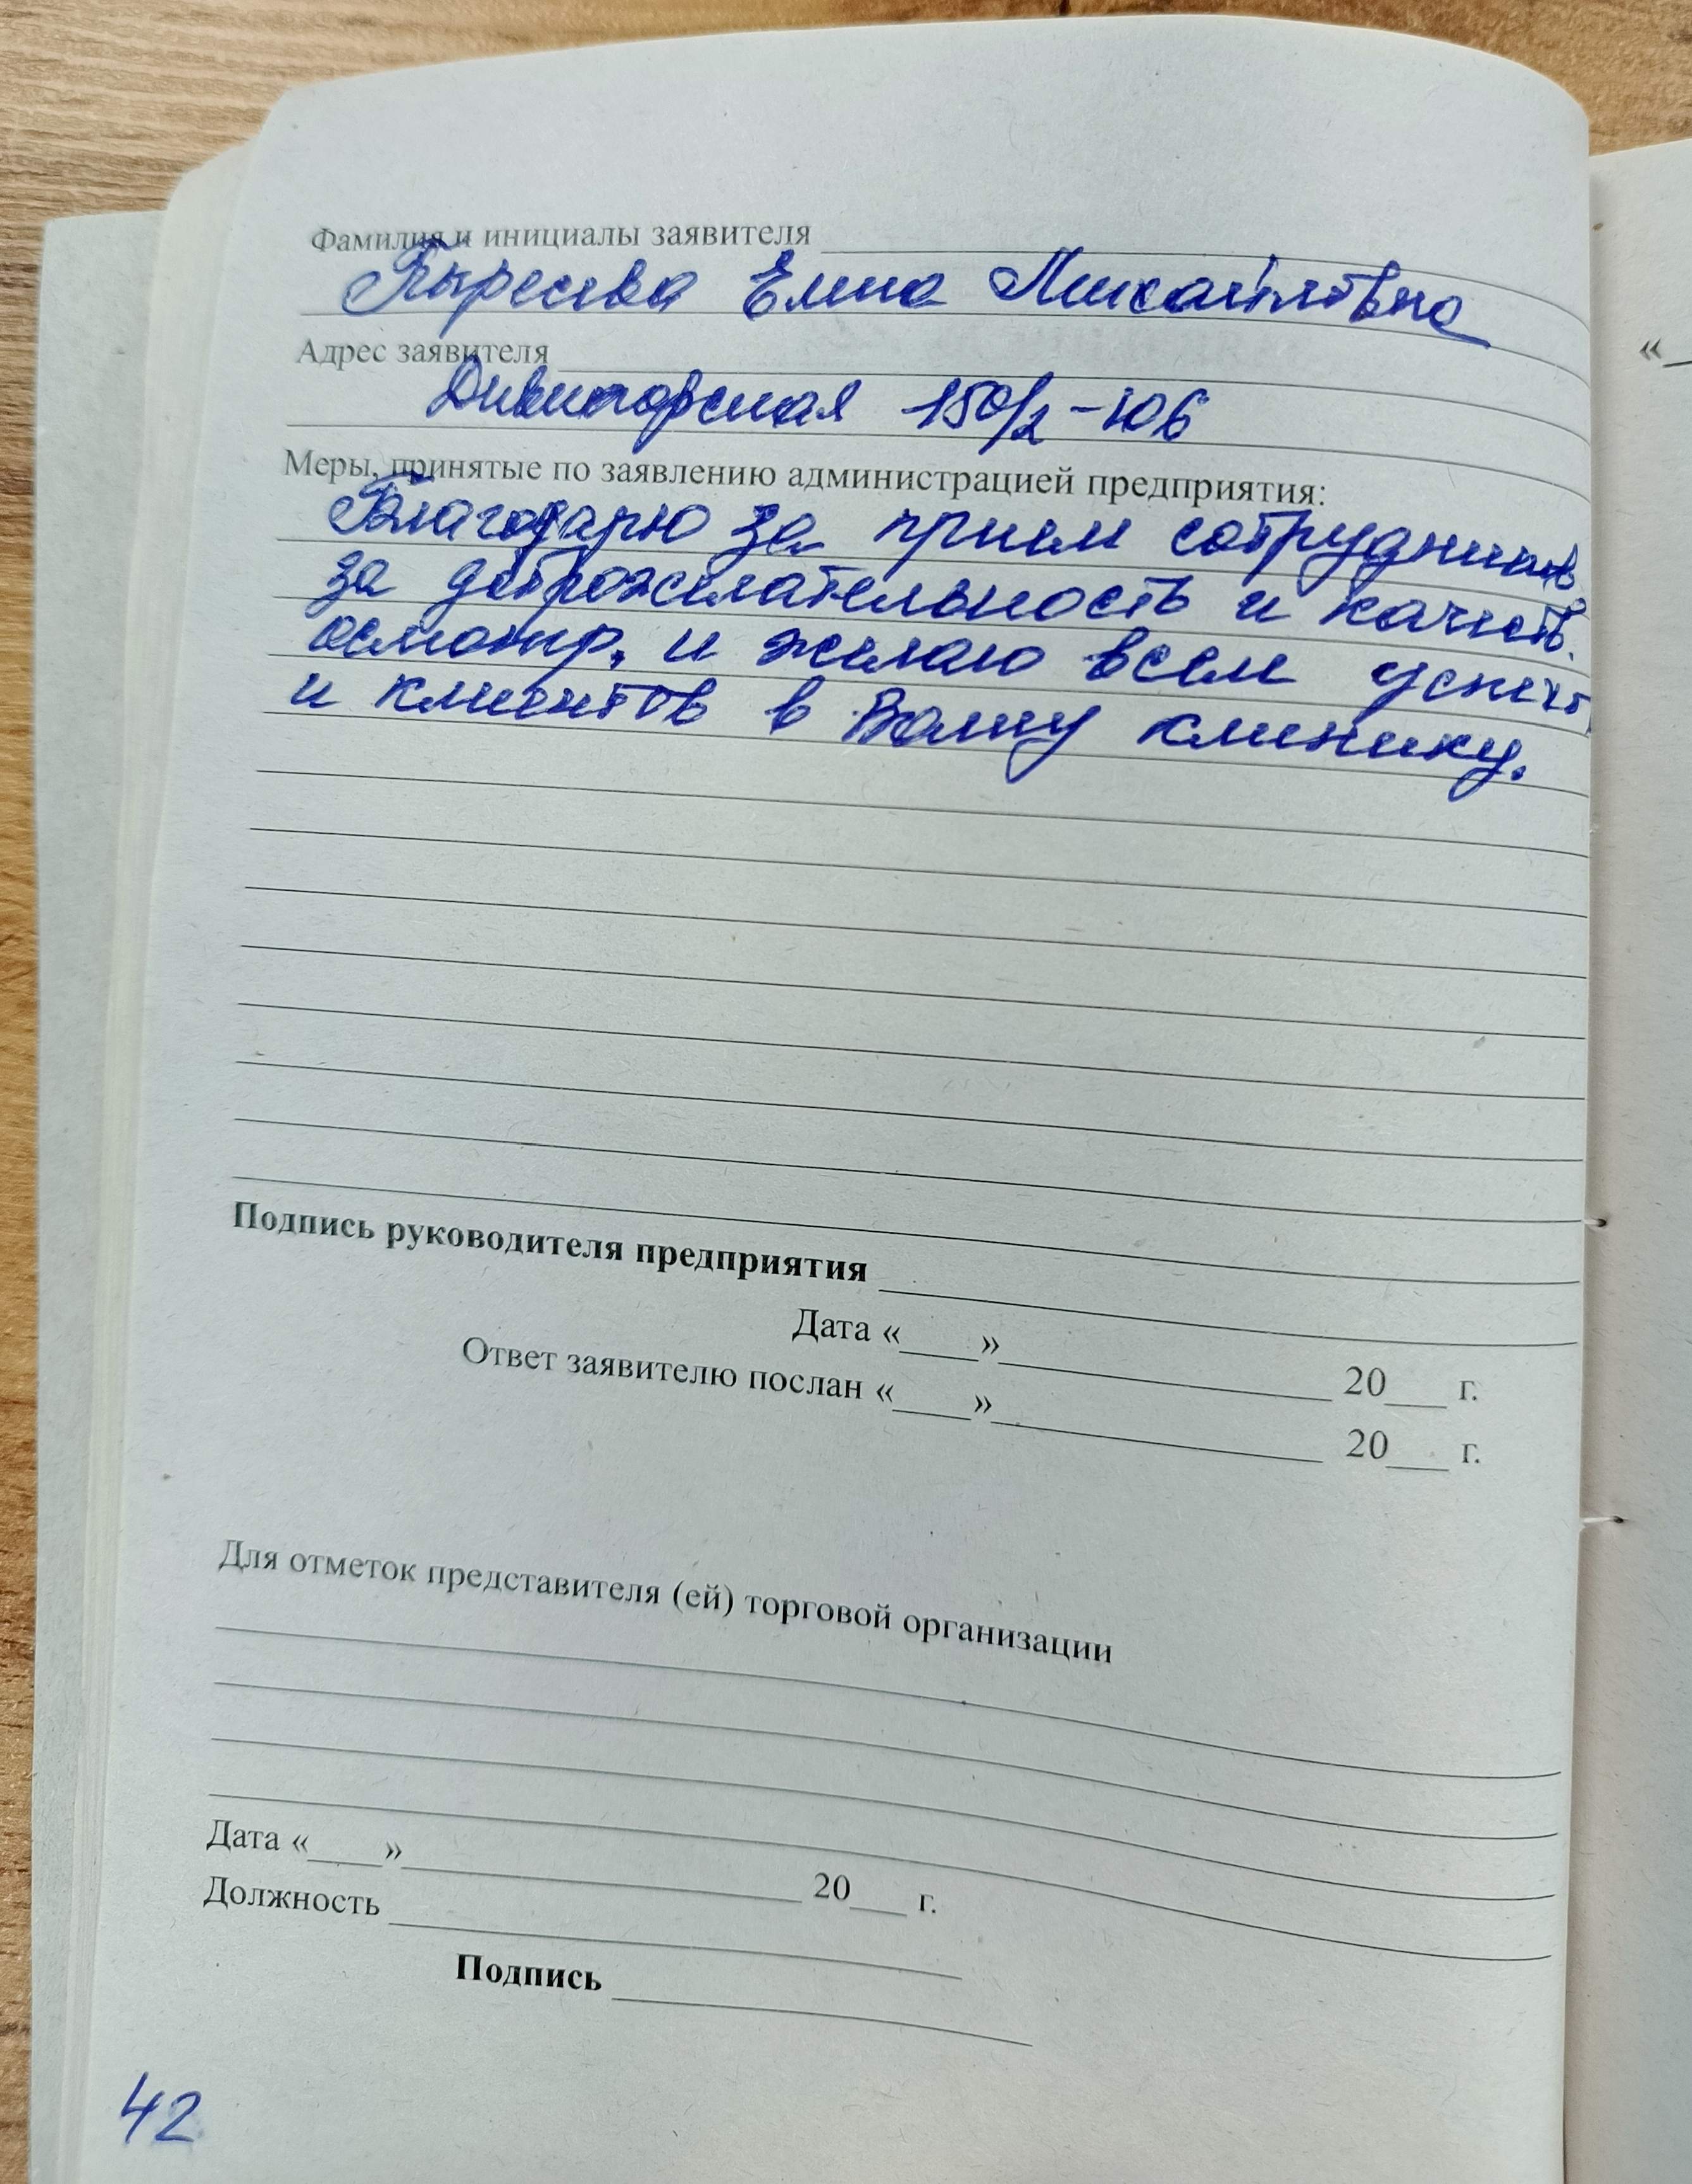 Фамилия и инициалы заявителя
Елена Михайловна
Адрес заявителя
Дивногорская 150/2-106
Меры, принятые по заявлению администрацией предприятия:
Благодарю за прием сотрудников,
за доброжелательность и качеств.
осмотр, и желаю всем
и клиентов в Вашу клинику.
Подпись руководителя предприятия
Дата «____»________________ 20___ г.
Ответ заявителю послан «____»________________ 20___ г.
Для отметок представителя (ей) торговой организации
Дата «____»____________________ 20___ г.
Должность
Подпись
42
«